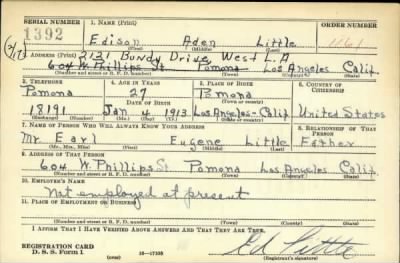 SERIAL NUMBER 1. NAME (Print) ORDER NUMBER
1392 Edison Aden Little 1161
(First) (Middle) (Last)
2. ADDRESS (Print) 2121 Bundy Drive West L.A
604 W. Phillips St Pomona Los Angeles Calif.
(Number and street or R. F. D. number) (Town) (County) (State)
3. TELEPHONE 4. AGE IN YEARS 5. PLACE OF BIRTH 6. COUNTRY OF CITIZENSHIP
Pomona 27 Pomona
(Town or county)
DATE OF BIRTH
18191 Jan 4 1913 Los Angeles-Calif. United States
(Exchange) (Number) (Mo.) (Day) (Yr.) (State or country)
7. NAME OF PERSON WHO WILL ALWAYS KNOW YOUR ADDRESS 8. RELATIONSHIP OF THAT PERSON
Mr. Earl Eugene Little Father
(Mr., Mrs., Miss) (First) (Middle) (Last)
9. ADDRESS OF THAT PERSON
604 W. Phillips St Pomona Los Angeles Calif.
(Number and street or R. F. D. number) (Town) (County) (State)
10. EMPLOYER'S NAME
Not employed at present
11. PLACE OF EMPLOYMENT OR BUSINESS
(Number and street or R. F. D. number) (Town) (County) (State)
I AFFIRM THAT I HAVE VERIFIED ABOVE ANSWERS AND THAT THEY ARE TRUE.
REGISTRATION CARD
D. S. S. Form 1 (over) 16—17105 Ed Little
(Registrant's signature)